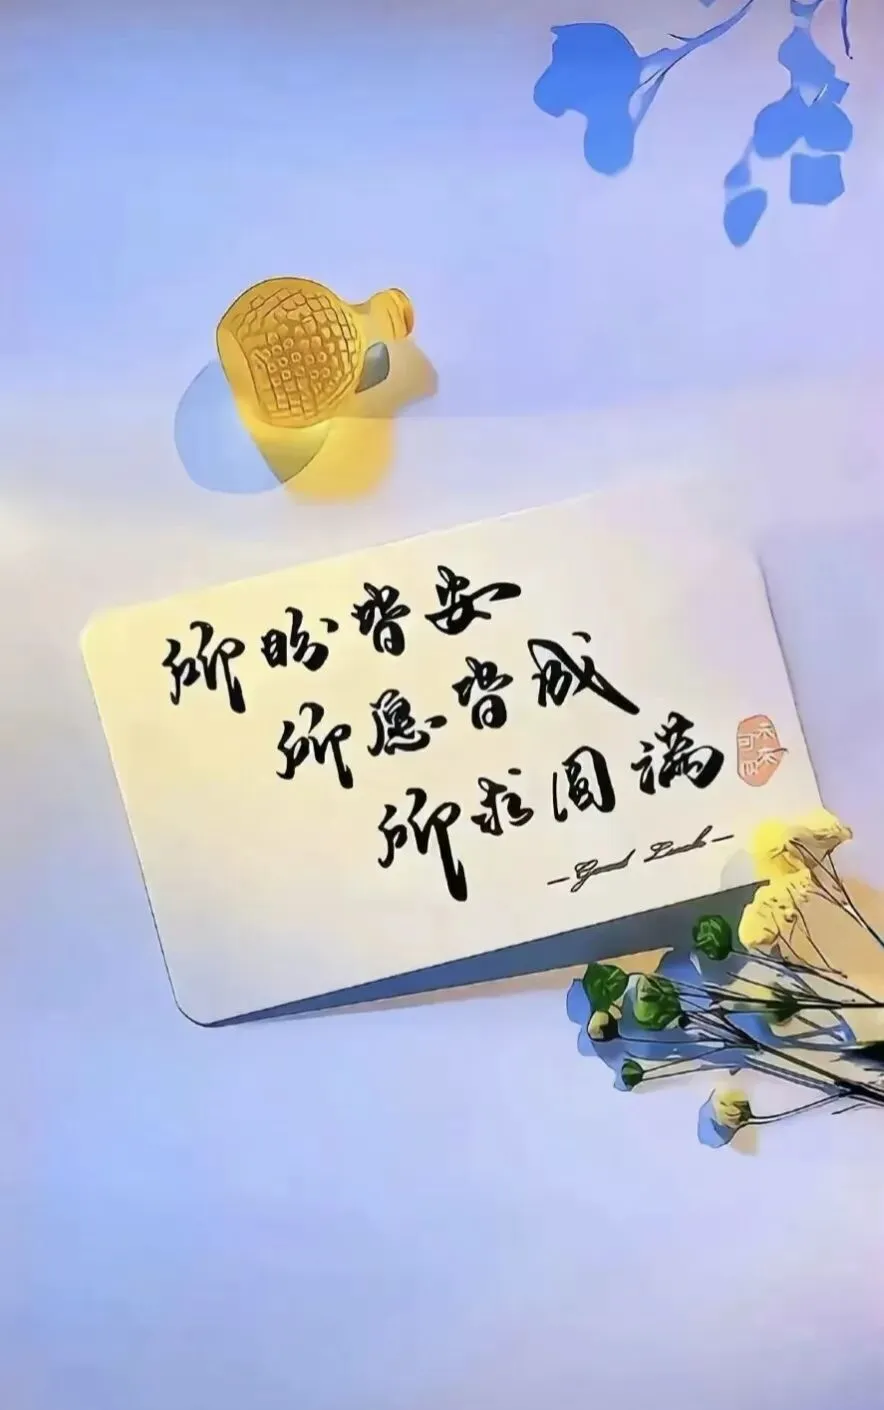 所盼皆安
所愿皆成
所求圆满
-Good Luck-